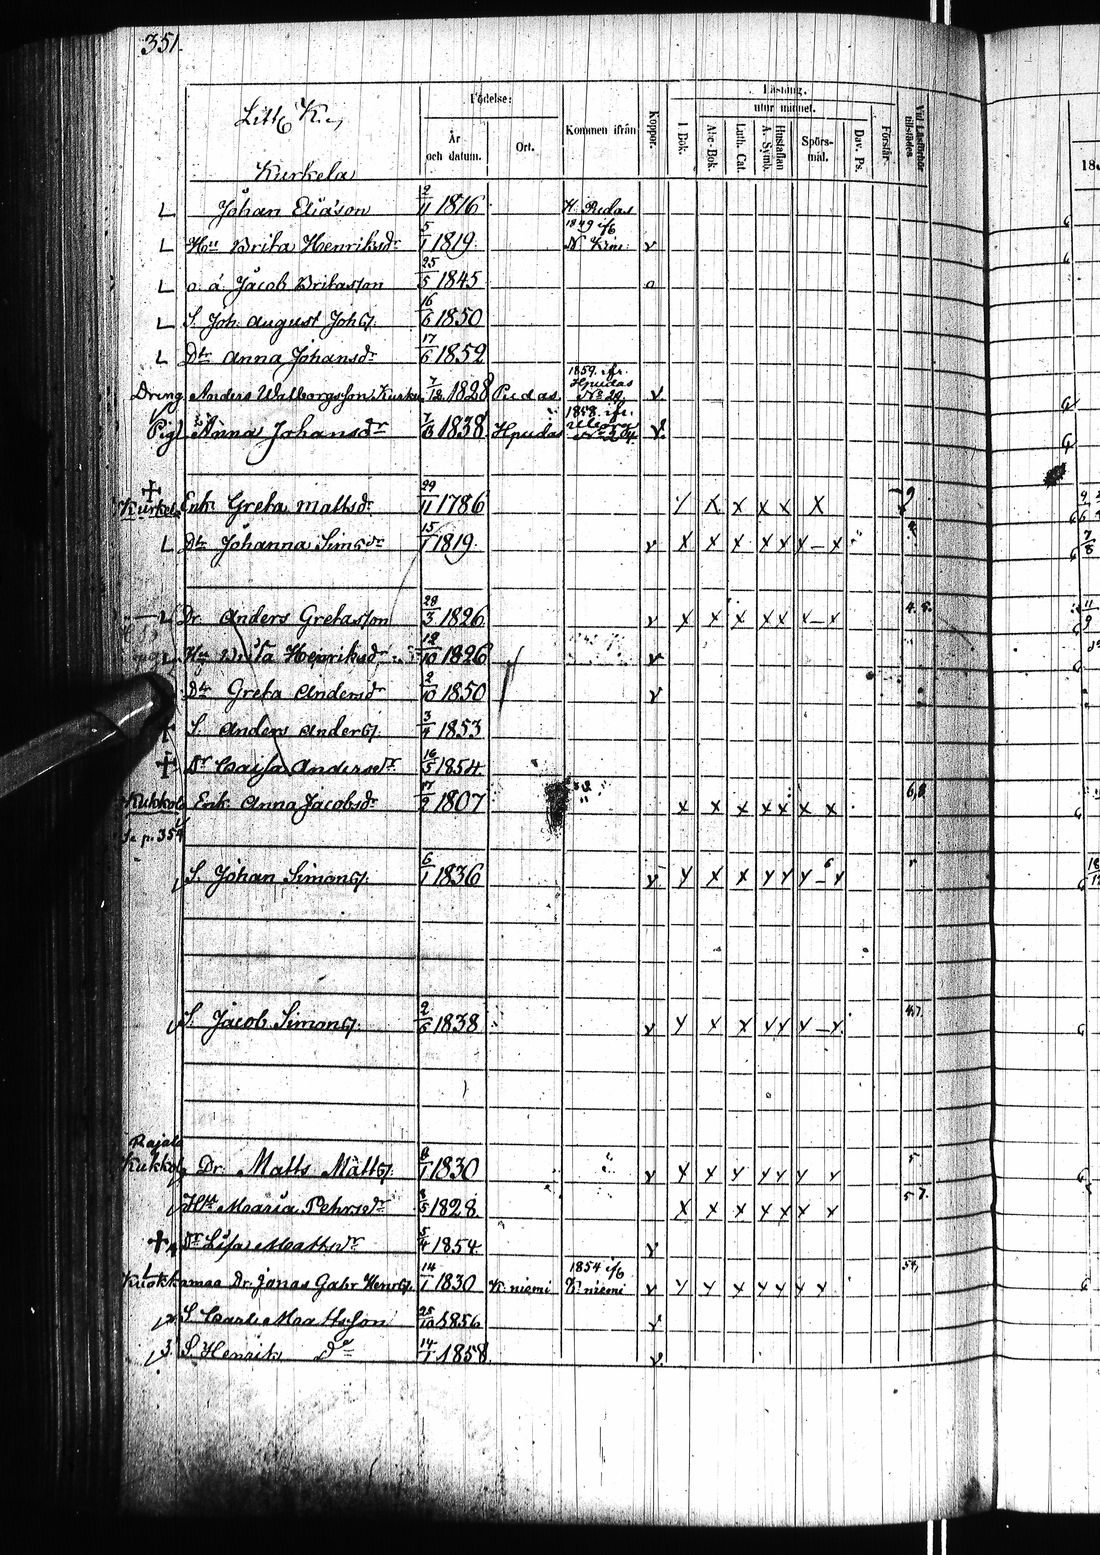 351.
Litt K.
Kurkela
Födelse:
År och datum.
Ort.
Kommen ifrån
Koppor.
Läsning.
utur minnet.
I Bok.
Abc-Bok.
Luth. Cat.
Hustaflan A. Symb.
Spörsmål.
Dav. Ps.
Förstår.
Vid Läsförhör tillstädes
L Johan Eliasson 2/11 1816 H. Pudas
L Hu Brita Henriksdr 5/1 1819. 1849 N. Kimi v
L o. ä. Jacob Britasson 25/5 1845 o
L S. Joh. August Joh 16/6 1850
L Dtr Anna Johansdr 17/6 1852
Dreng Anders Walborgsson Kurkela 7/12 1828 Pudas. 1859. ifr. Hpudas No 20. v
Pig Anna Johansdr 1838 Hpudas 1858. ifr. Uleåborg v.
+ Kurkela Enk. Greta Mattsdr 29/11 1786 x x x x x x
L Dtr Johanna Simsdr 15/1 1819. v x x x x x x – x
L Dr. Anders Gretasson 28/3 1826 v x x x x x x – x 4. 5.
L Hu Brita Henriksdr 12/10 1826 v
Dtr Greta Andersdr 2/10 1850 v
+ S. Anders Anders 3/4 1853
+ Dr Caisa Andersdr 16/5 1854.
Kukkola Enk. Anna Jacobsdr 17/2 1807 x x x x x x x 6,8
Se p. 354
S. Johan Simons. 6/1 1836 v x x x x x x – x
S. Jacob Simons. 2/6 1838 v x x x x x x – x. 4.7.
Rajala
Kukkola Dr. Matts Matts. 8/1 1830 v x x x x x x x 5
Hu Maria Pehrsdr 8/5 1828. x x x x x x x 5 7.
+ Dr Lisa Mattsdr 5/4 1854 v
Dr. Jonas Gabr. Henrs. 14/1 1830 K:niemi 1854 K:niemi v x x x x x x x
S Carl Mattsson 25/10 1856 v
S. Henrik Do 14/1 1858. v.